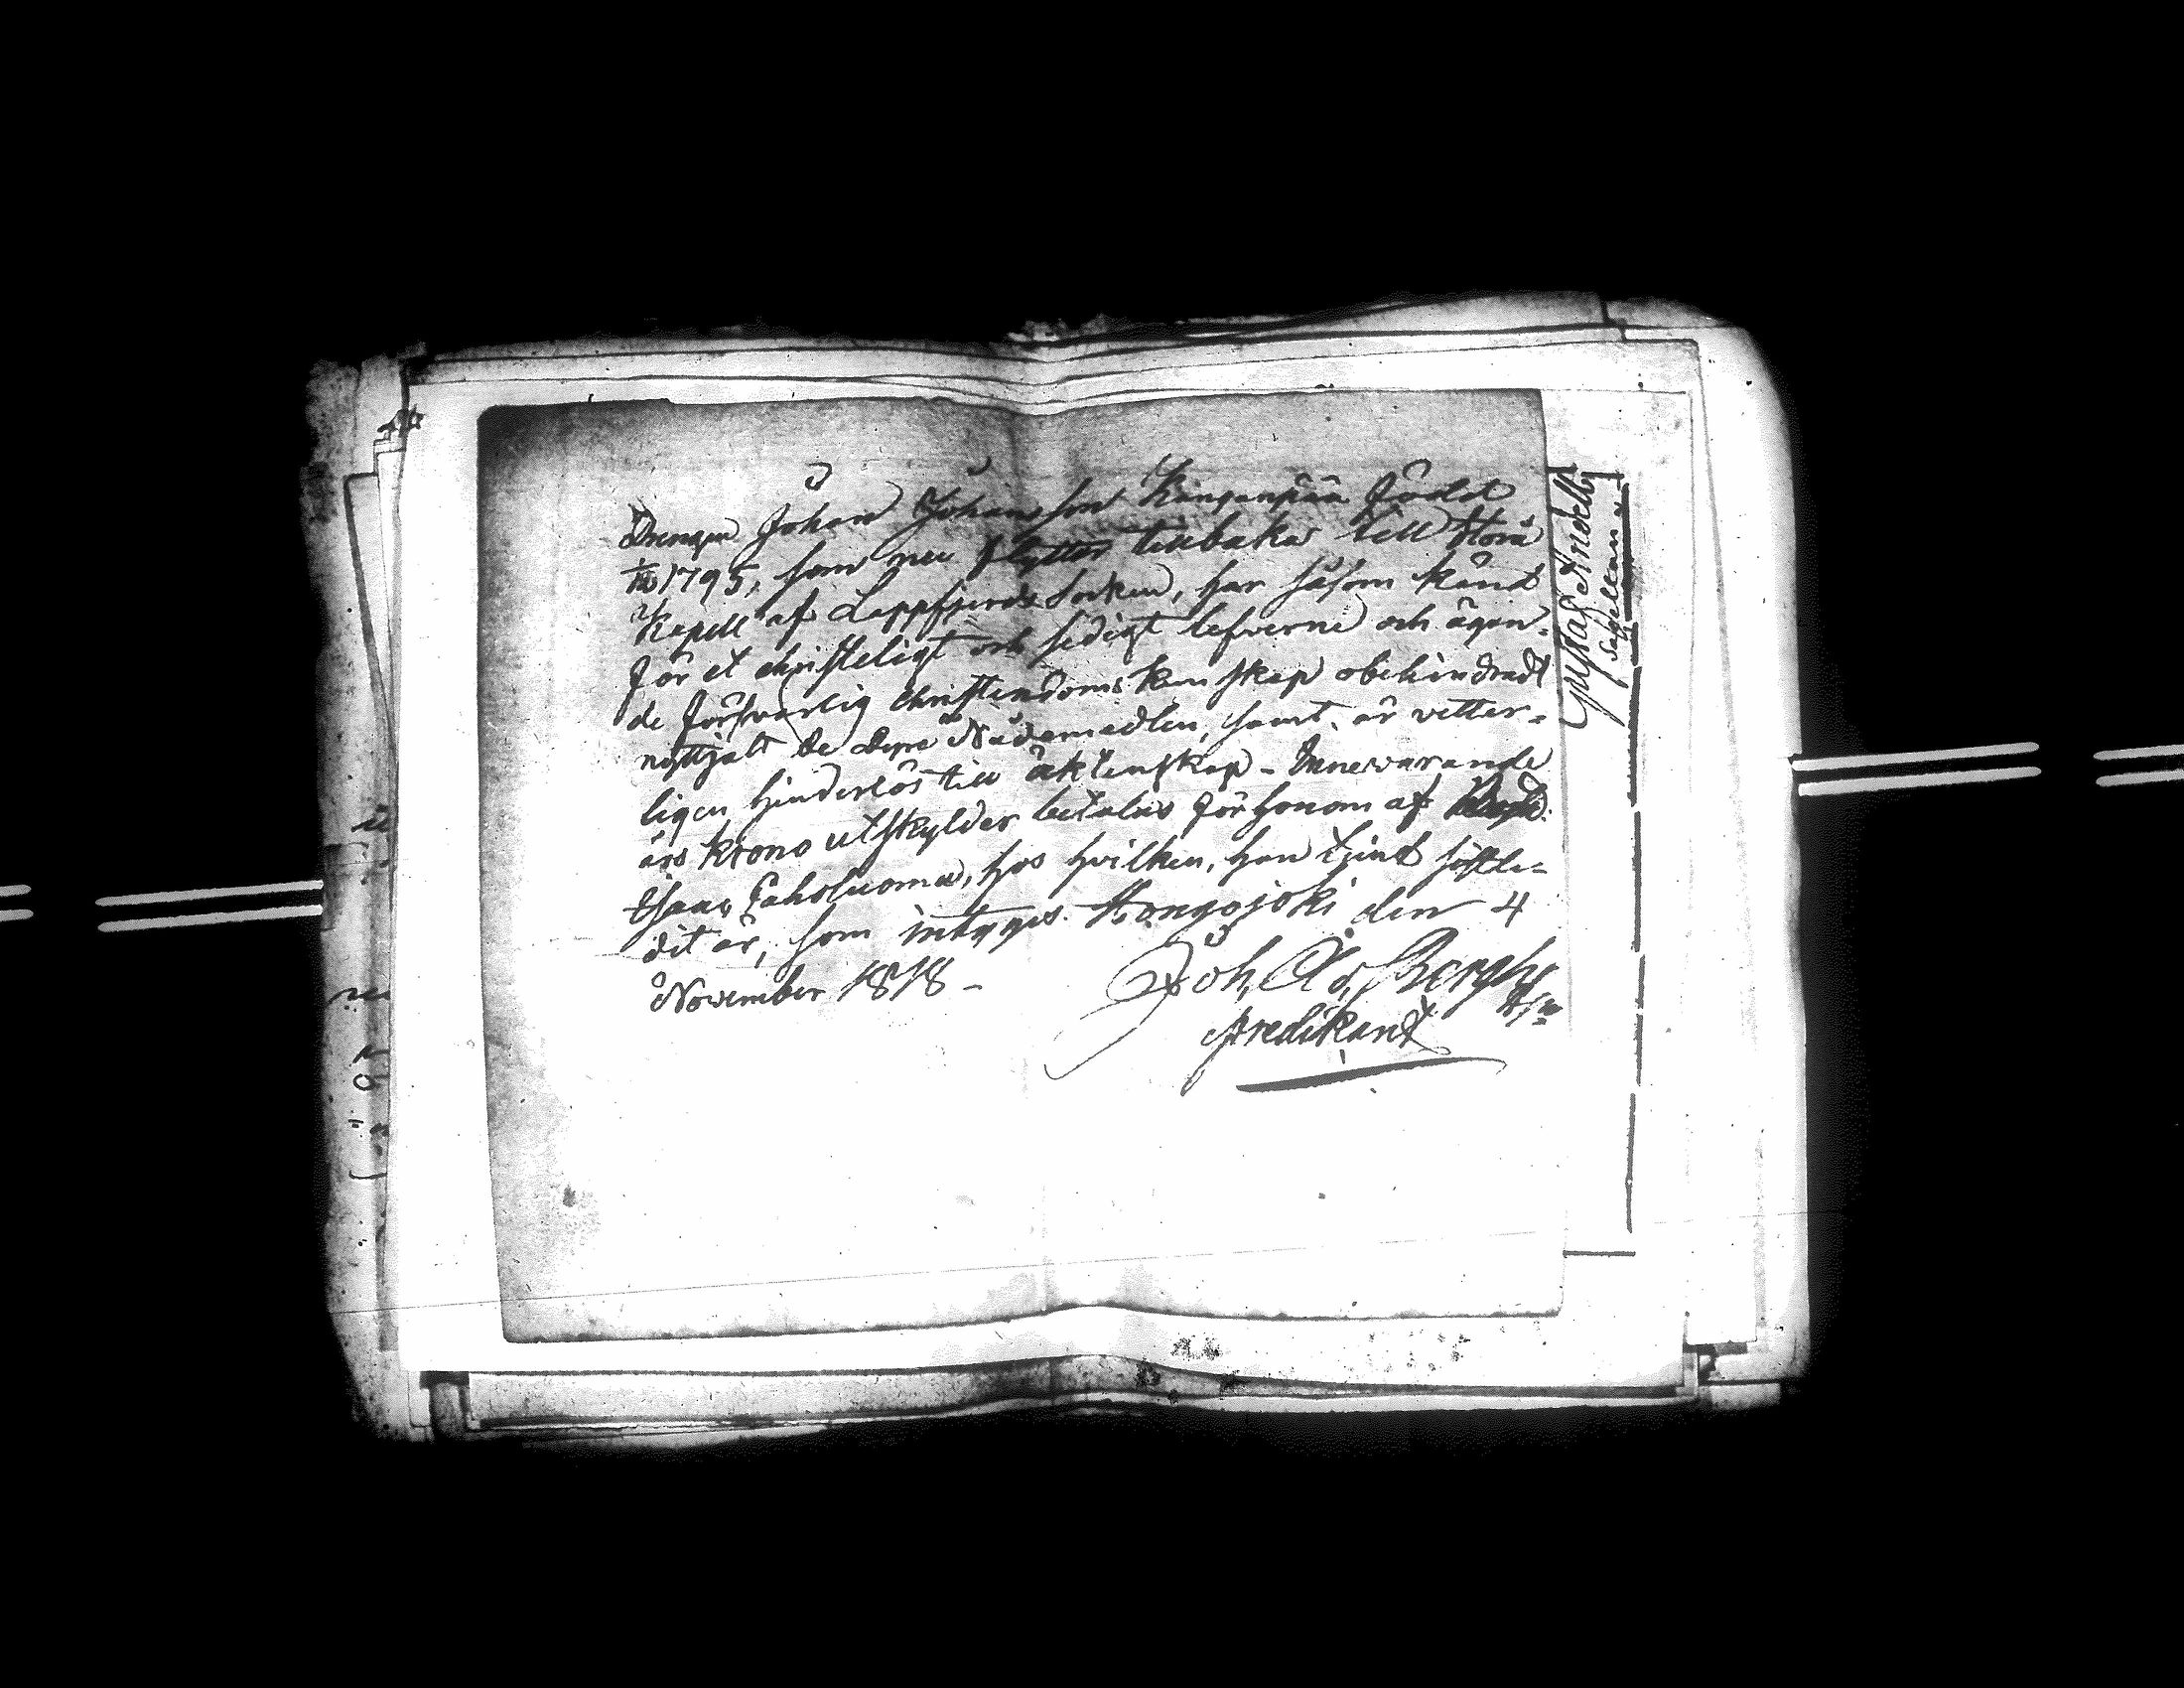 Drengen Johan Johansson Kanganpää född
1795, som nu flyttar tillbaka till Storå
Kapell af Lappfjerds Socken, har såsom känd
för et christeligt och sedigt lefverne och ägan-
de försvarlig christendoms kunskap obehindradt
nyttjat de dyra Nådemedlen, samt är vetter-
ligen hinderlös till äktenskap. Innevarande
års krono utskylder betalas för honom af
Isaac hos hvilken han tjent sistle-
dit år, som intygas. Kongojoki den 4
November 1818 -
Joh. Ad. Bergh
predikant
Gustaf Aridell
Sacellan